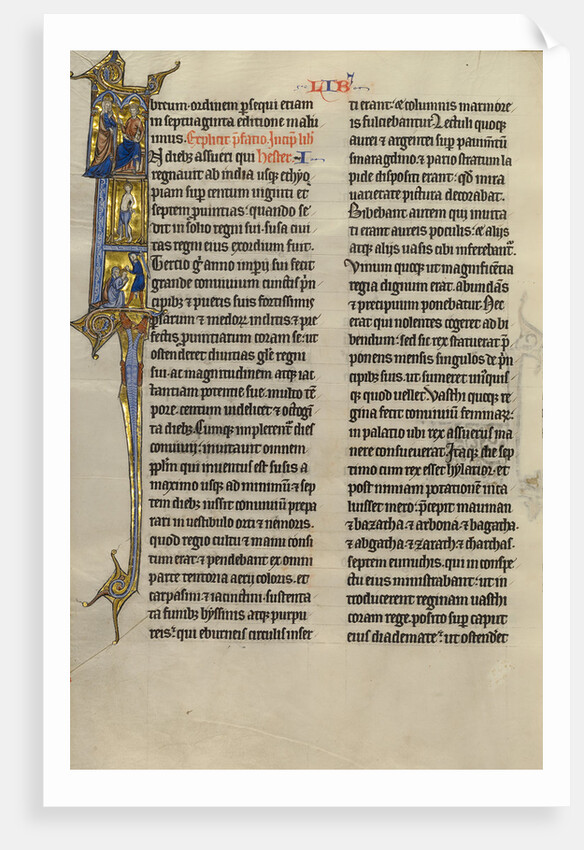 LIB
breum·ordinem p̄sequi etiam
in septuaginta editione malu
imus. Explicit p̄fatio. Incip̄ lib̄
N diebꝫ assueri qui Hester. I
regnauit ab india usqꝫ ethyo
piam sup̄ centum uiginti et
septem p̄uintias: quando se
dit in solio regni sui. susa ciui
tas regni eius exordium fuit.
Tertio gͦ anno imp̄ij sui fecit
grande conuiuium cunctis p̄n
cipibꝫ ⁊ pueris suis fortissimis
p̄sarum ⁊ medoꝝ inclitis. ⁊ pre
fectis p̄uintiarum coram se: ut
ostenderet diuitias gl̄e regni
sui. ac magnitudinem atqꝫ iac
tantiam potentie sue. multo tē
pore. centum uidelicet ⁊ octogī
ta diebꝫ. Cumqꝫ implerent᷑ dies
conuiuij: inuitauit omnem
pp̄lm qui inuentus est susis a
maximo usqꝫ ad minimū: ⁊ sep
tem diebꝫ iussit conuiuiū prepa
rari in uestibulo orti ⁊ nemoris.
quod regio cultu ⁊ manu consi
tum erat: ⁊ pendebant ex omni
parte tentoria aerij coloris. et
carpasini. ⁊ iacinctini. sustenta
ta funibꝫ byssinis atqꝫ purpu
reis: qui eburneis circulis inser
ti erant: ⁊ columnis marmore
is fulciebantur. Lectuli quoqꝫ
aurei ⁊ argentei sup̄ pauimtū
smaragdino ⁊ pario stratum la
pide dispositi erant: qd̄ mira
uarietate pictura decorabat.
Bibebant autem qui inuita
ti erant aureis poculis: ⁊ alijs
atqꝫ alijs uasis cibi inferebant᷑.
Vinum quoqꝫ ut magnificētia
regia dignum erat. abundās
⁊ precipuum ponebatur. Nec
erat qui nolentes cogeret ad bi
bendum: sed sic rex statuerat p̄
ponens mensis singulos de p̄n
cipibꝫ suis. ut sumeret unusquis
qꝫ quod uellet. Vasthi quoqꝫ re
gina fecit conuiuiū feminaꝝ:
in palatio ubi rex assuerus ma
nere consueuerat. Itaqꝫ die sep
timo cum rex esset hylarior. et
post nimiam potationem inca
luisset mero: p̄cepit mauman
⁊ bazatha ⁊ arbona. ⁊ bagatha.
⁊ abgatha. ⁊ zarath. ⁊ charchas.
septem eunuchis. qui in conspe
ctu eius ministrabant: ut in
troducerent reginam uasthi
coram rege. posito sup̄ caput
eius diademate: ut ostenderet